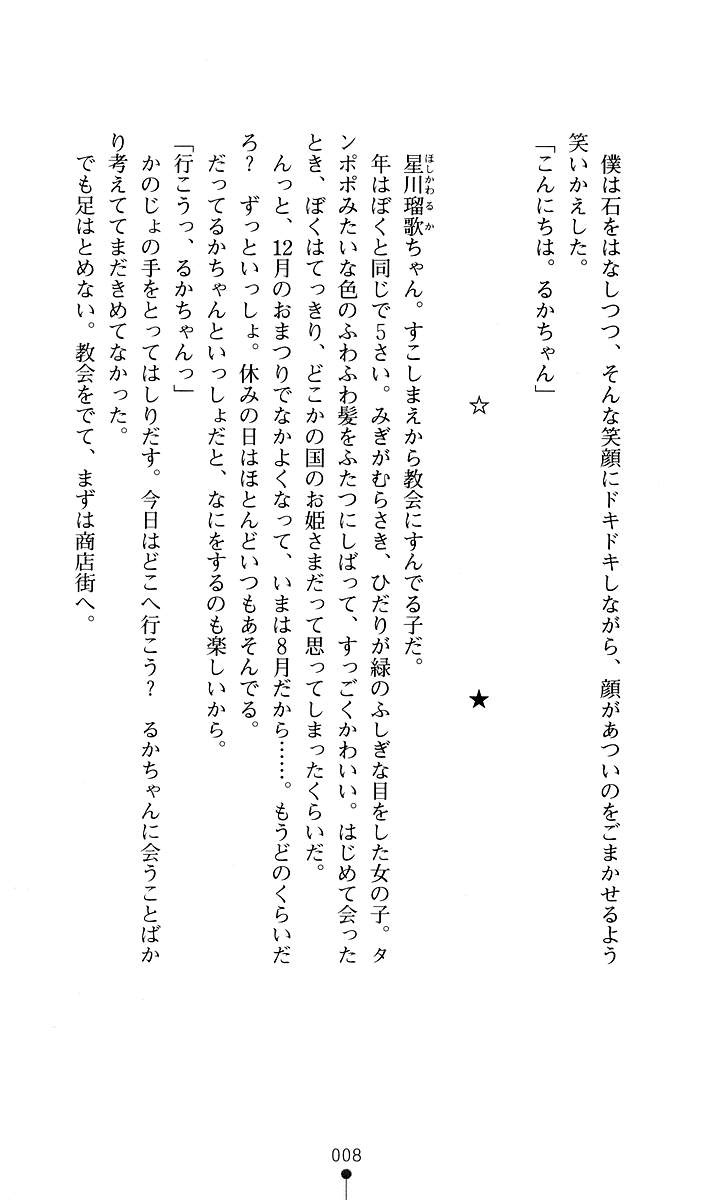 僕は石をはなしつつ、そんな笑顔にドキドキしながら、顔があついのをごまかせるよう
笑いかえした。
「こんにちは。るかちゃん」
☆
★
星川瑠歌ちゃん。すこしまえから教会にすんでる子だ。
ほしかわるか
年はぼくと同じで5さい。みぎがむらさき、ひだりが緑のふしぎな目をした女の子。タ
ンポポみたいな色のふわふわ髪をふたつにしばって、すっごくかわいい。はじめて会った
とき、ぼくはてっきり、どこかの国のお姫さまだって思ってしまったくらいだ。
んっと、12月のおまつりでなかよくなって、いまは8月だから……。もうどのくらいだ
ろ？　ずっといっしょ。休みの日はほとんどいつもあそんでる。
だってるかちゃんといっしょだと、なにをするのも楽しいから。
「行こうっ、るかちゃんっ」
かのじょの手をとってはしりだす。今日はどこへ行こう？　るかちゃんに会うことばか
り考えててまだきめてなかった。
でも足はとめない。教会をでて、まずは商店街へ。
008